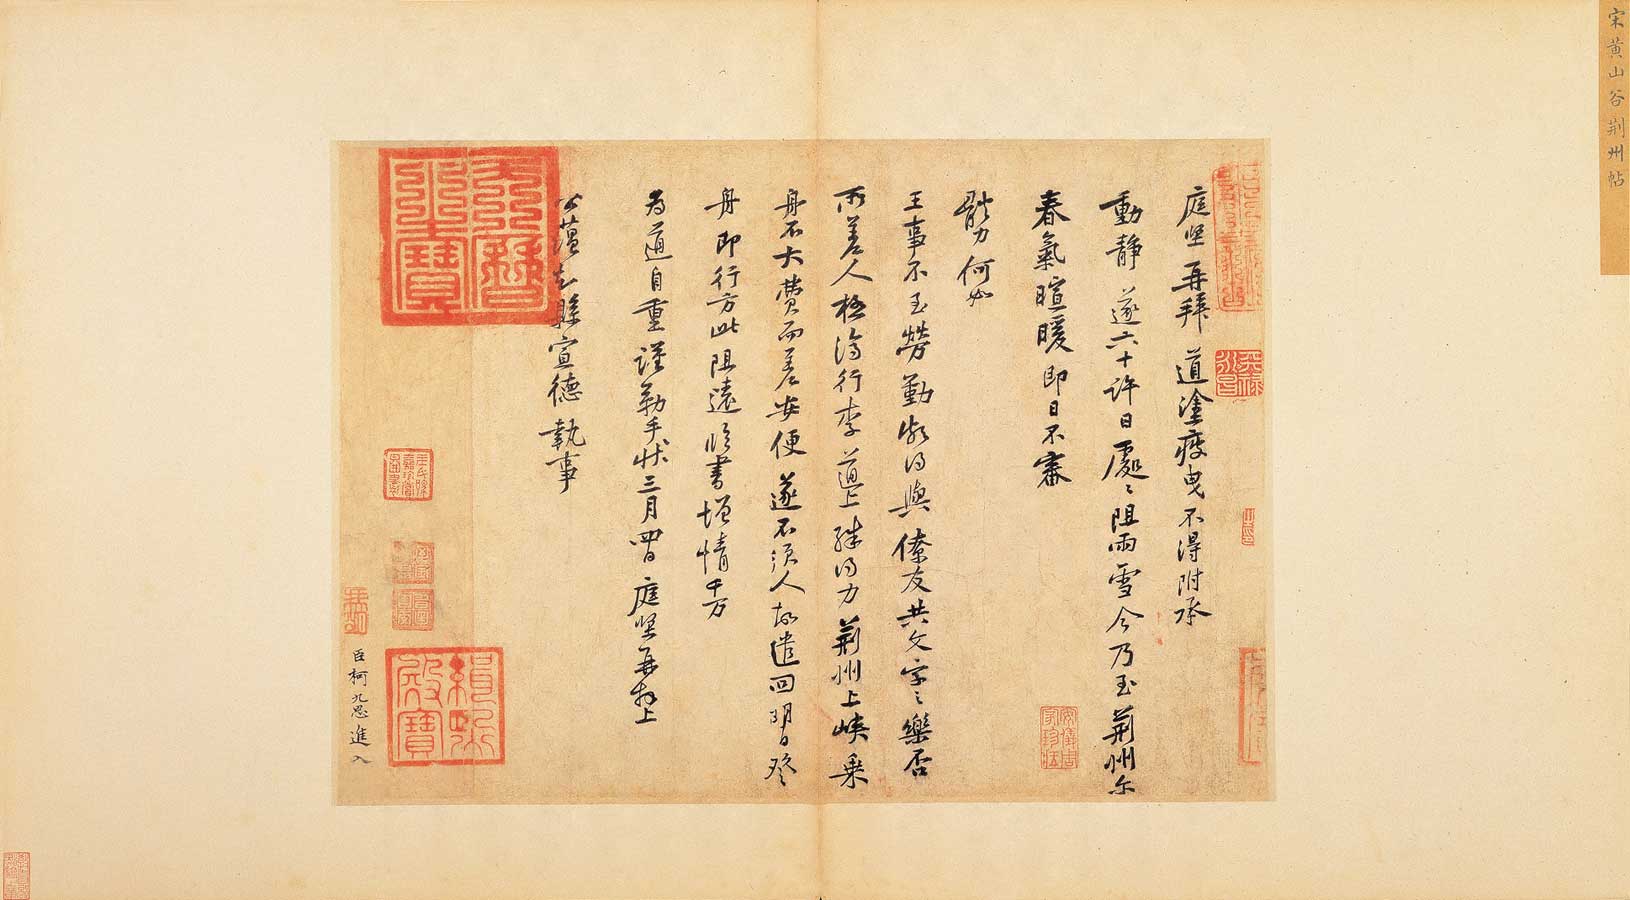 宋黃山谷荊州帖
庭堅再拜道塗疲曳不得附承
動靜遂六十許日處〻阻雨雪今乃至荊州尔
春氣暄暖即日不審
體力何如
王事不至勞勤頗得與僚友共文字之樂否
所差人極濟行李道上殊得力荊州上峽乘
舟不大費而差安便遂不須人故遣回明日發
舟即行方此阻遠臨書增情千万
為道自重謹勒手狀三月四日庭堅再拜上
公蘊知縣宣德執事
臣柯九思進入
天曆之寶
緝熙殿寶